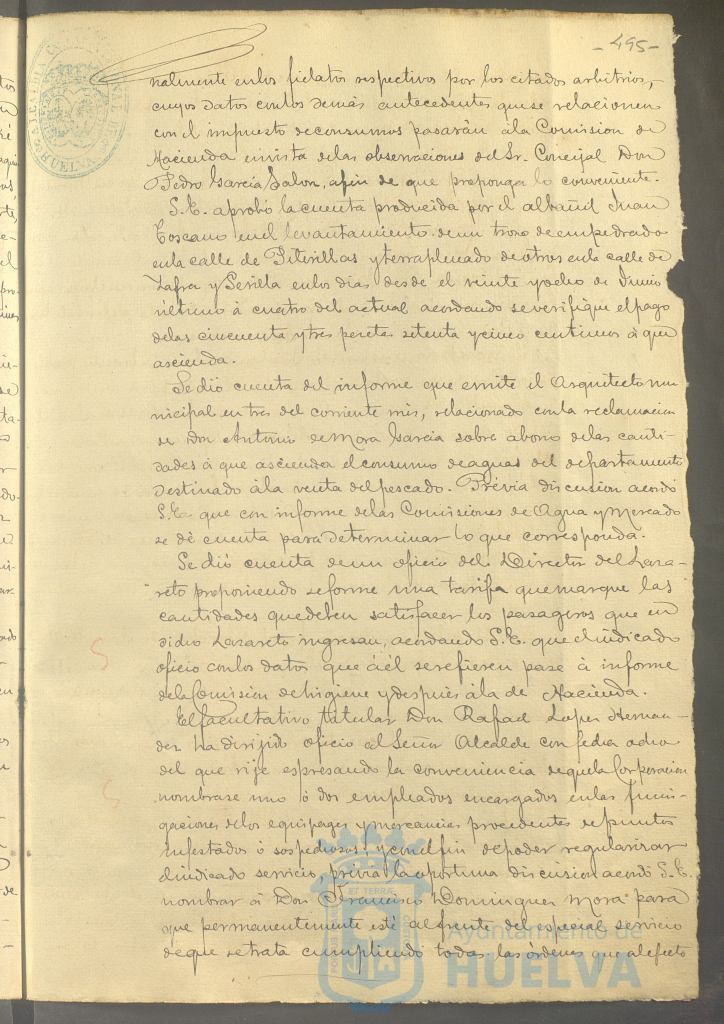 -495-
nalmente en los fielatos respectivos por los citados arbitrios,
cuyos datos con los demás antecedentes que se relacionen
con el impuesto de consumos pasarán á la Comision de
Hacienda en vista de las observaciones del Sr. Concejal Don
Pedro Garcia Jalon, afin de que proponga lo conveniente.
S.E. aprobó la cuenta producida por el albañil Juan
Toscano en el levantamiento de un trozo de empedrado
en la calle de Puterillas y terraplenado de otros en la calle de
Zafra y Sevilla en los dias desde el veinte y ocho de Junio
último á cuatro del actual acordando se verifique el pago
de las cincuenta y tres pesetas setenta y cinco centimos á que
ascienda.
Se dió cuenta del informe que emite el Arquitecto mu-
nicipal en tres del corriente mes, relacionado con la reclamacion
de Don Antonio de Mora Garcia sobre abono de las canti-
dades á que ascienden el consumo de aguas del departamento
destinado á la venta del pescado. Prévia discusion acordó
S.E. que con informe de las Comisiones de Agua y Mercado
se dé cuenta para determinar lo que corresponda.
Se dió cuenta de un oficio del Director del Laza-
reto proponiendo se forme una tarifa que marque las
cantidades que deben satisfacer los pasageros que en
dicho Lazareto ingresan, acordando S.E. que el indicado
oficio con los datos que á él se refieren pase á informe
de la Comision de higiene y despues á la de Hacienda.
El facultativo titular Don Rafael Lopez Hernan-
dez ha dirijido oficio al Señor Alcalde con fecha ocho
del que rije espresando la conveniencia de que la Corporacion
nombrase uno ó dos empleados encargados en las fumi-
gaciones de los equipages y mercancias procedentes de puntos
infestados ó sospechosos; y con el fin de poder regularizar
el indicado servicio, prévia la oportuna discusion acordó S.E.
nombrar á Don Francisco Dominguez Mora para
que permanentemente esté al frente del especial servicio
de que se trata cumpliendo todas las órdenes que al efecto
HUELVA
Ayuntamiento de
HUELVA